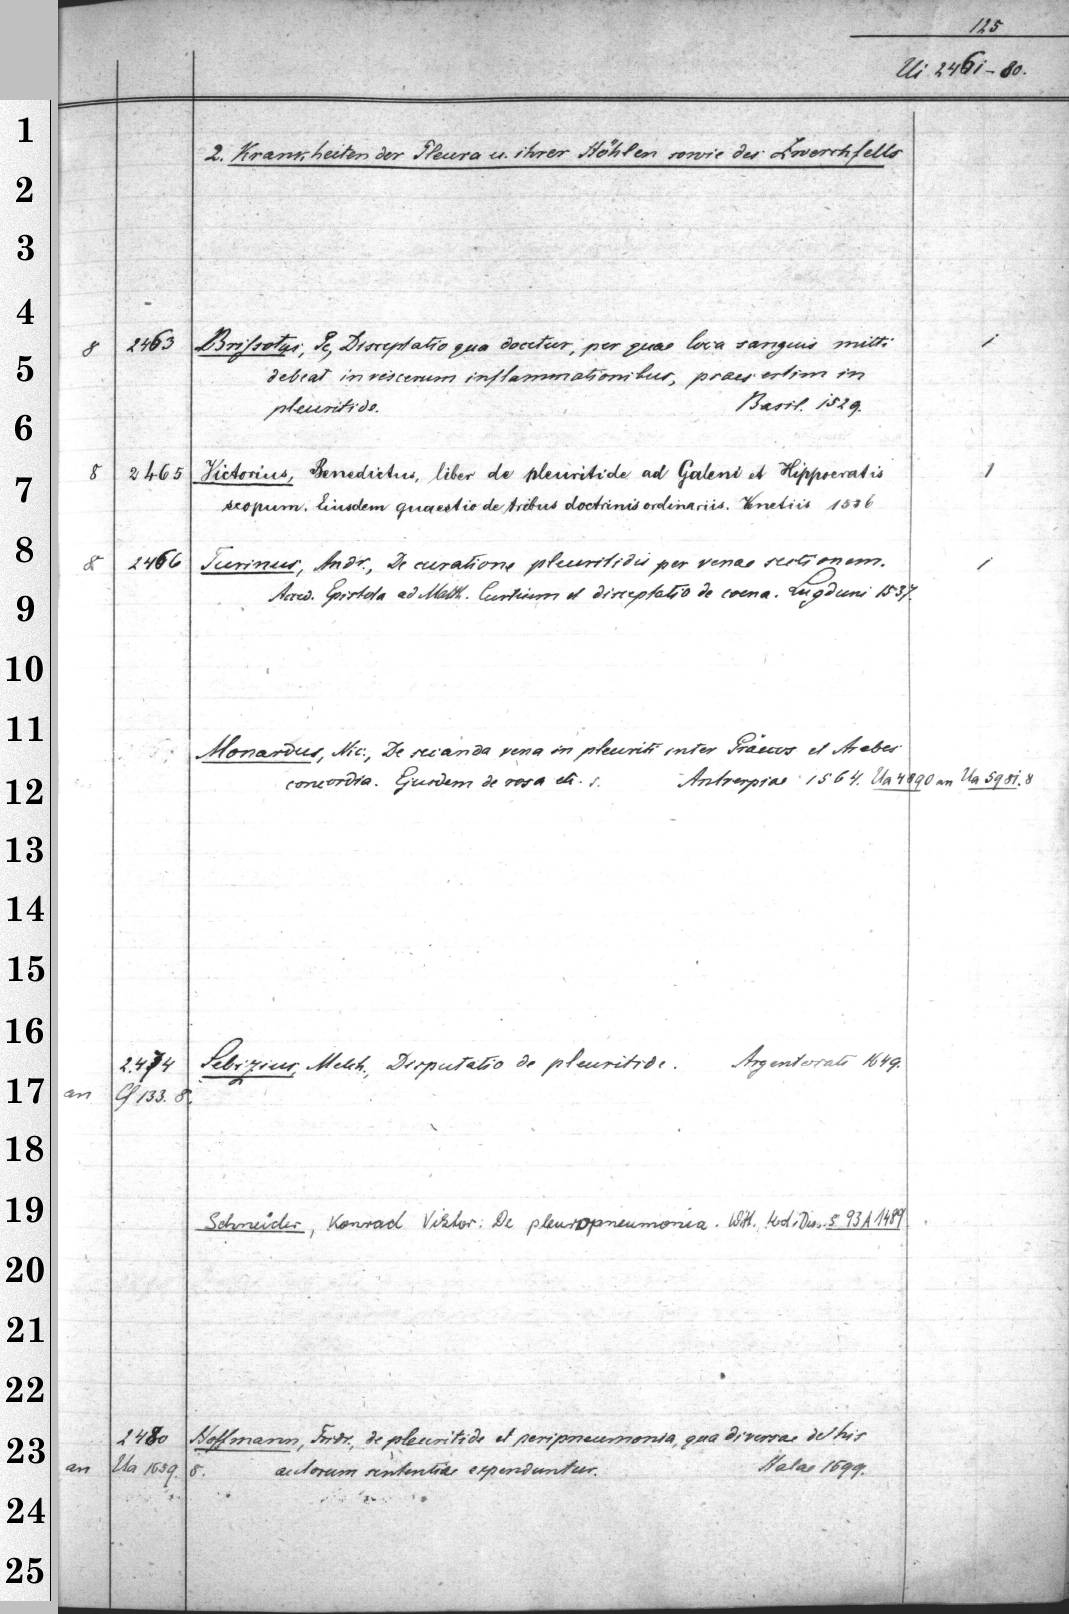 125
Ui 2461-80.
1
2. Krankheiten der Pleura u. ihrer Höhlen sowie des Zwerchfells
2
3
4
8 2463 Brissotus, P., Disceptatio qua docetur, per quae loca sanguis mitti 1
5
debeat in viscerum inflammationibus, praesertim in
pleuritide. Basil. 1529.
6
8 2465 Victorius, Benedictus, liber de pleuritide ad Galeni et Hippocratis 1
7
scopum. Eiusdem quaestio de tribus doctrinis ordinariis. Venetiis 1536
8
8 2466 Turinus, Andr., De curatione pleuritidis per venae sectionem. 1
9
Acced. Epistola ad Matth. Curtium et disceptatio de coena. Lugduni 1537.
10
11
Monardus, Nic., De secanda vena in pleuriti inter Graecos et Arabes
12
concordia. Ejusdem de rosa etc. Antverpiae 1564. Ua 4890 an Ua 5981.8
13
14
15
16
2474 Sebizius, Melch., Disputatio de pleuritide. Argentorati 1649.
17
an Cf 133. 8.
18
19
Schneider, Konrad Viktor: De pleuropneumonia. Witt., Med. Diss. S 93 A 1489
20
21
22
2480 Hoffmann, Frdr., de pleuritide et peripneumonia, qua diversae de his
23
an Ua 1639. 8. autorum sententiae expenduntur. Halae 1699.
24
25